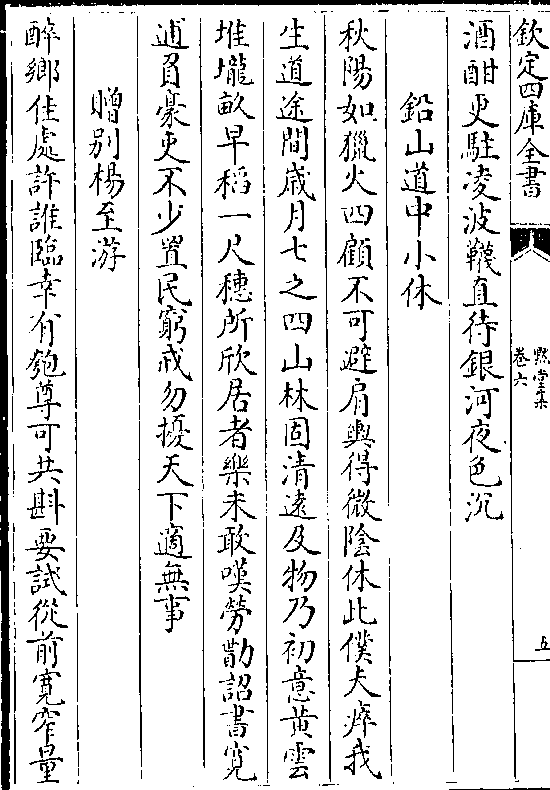 欽定四庫全書
默堂集
卷六
五
酒酣更駐凌波韈直待銀河夜色沉
鉛山道中小休
秋陽如獵火四顧不可避肩輿得微陰休此僕夫瘁我
生道途間歳月七之四山林固清逺及物乃初意黄雲
堆壠畝早稻一尺穗所欣居者樂未敢嘆勞勩詔書寛
逋負豪吏不少置民窮戒勿擾天下適無事
贈别楊至游
醉鄉佳處許誰臨幸有匏尊可共斟要試從前寛窄量